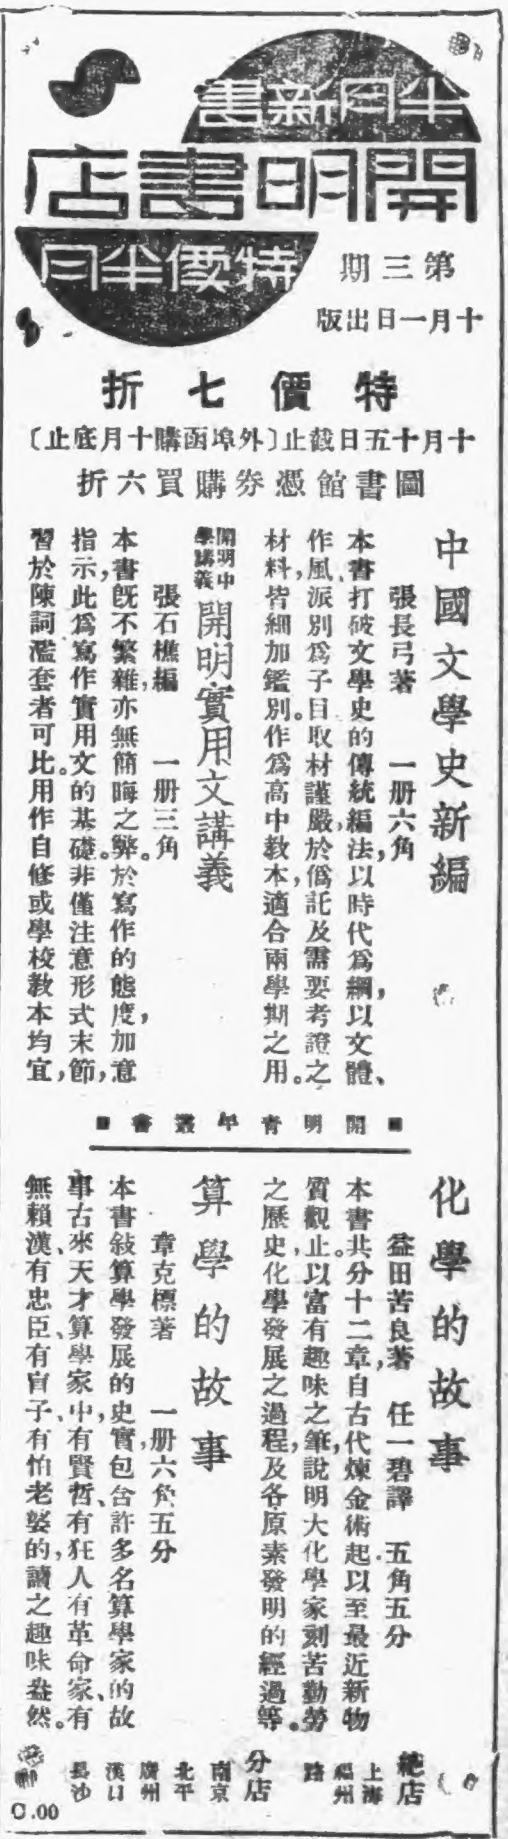 半月新書
開明書店
特價半月
第三期
十月一日出版
特價七折
十月十五日截止〔外埠函購十月底止〕
圖書館憑券購買六折
中國文學史新編
張長弓著　一册六角
本書打破文學史的傳統編法，以時代爲綱，以文體、
作風、派別爲子目取材謹嚴，於僞託及需要考證之
材料，皆細加鑑別。作爲高中教本，適合兩學期之用。
開明中學講義
開明實用文講義
張石樵編　一册三角
本書旣不繁雜，亦無簡晦之弊。於寫作的態度，加意
指示，此爲寫作實用文的基礎。非僅注意形式末節，
習於陳詞濫套者可比。用作自修或學校教本均宜，
■開明青年叢書■
化學的故事
益田苦良著　任一碧譯　五角五分
本書共分十二章，自古代煉金術起以至最近新物
質觀止。以富有趣味之筆，說明大化學家刻苦勤勞
之歷史，化學發展之過程，及各原素發明的經過等。
算學的故事
章克標著　一册六角五分
本書敍算學發展的史實包含許多名算學家的故
事古來天才算學家中，有賢哲、有狂人有革命家、有
無賴漢、有忠臣、有盲子、有怕老婆的，讀之趣味盎然。
總店
上海福州路
分店
南京
北平
廣州
漢口
長沙
C.00